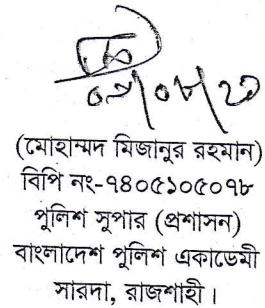 (মোহাম্মদ মিজানুর রহমান)
বিপি নং-৭৪০৫১০৫০৭৮
পুলিশ সুপার (প্রশাসন)
বাংলাদেশ পুলিশ একাডেমী
সারদা, রাজশাহী।